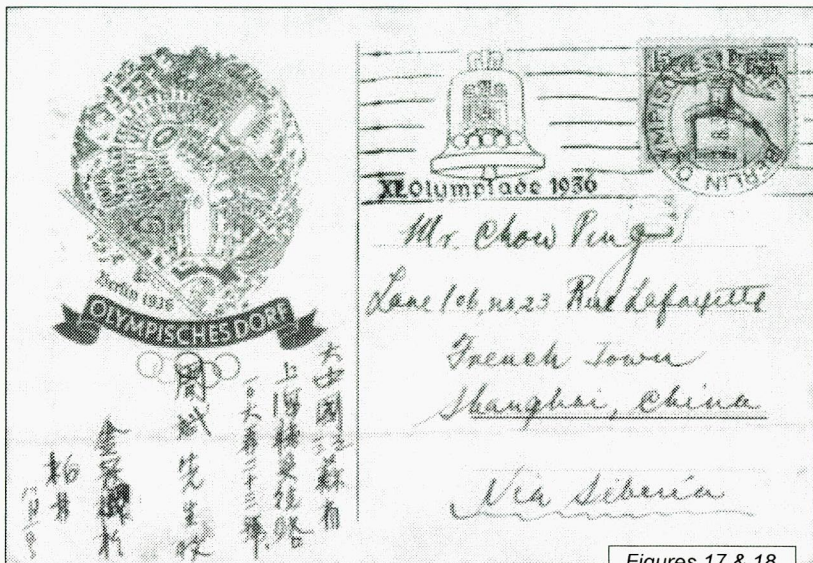 Berlin 1936
OLYMPISCHES DORF
大中國江蘇省
上海辣斐德路
一〇六弄二十三號
周 先生收
柏林
XI. Olympiade 1936
15
OLYMPISCHES
BERLIN
Mr. Chow Ping
Lane 106, no. 23 Rue Lafayette
French Town
Shanghai, China
Via Siberia
Figures 17 & 18